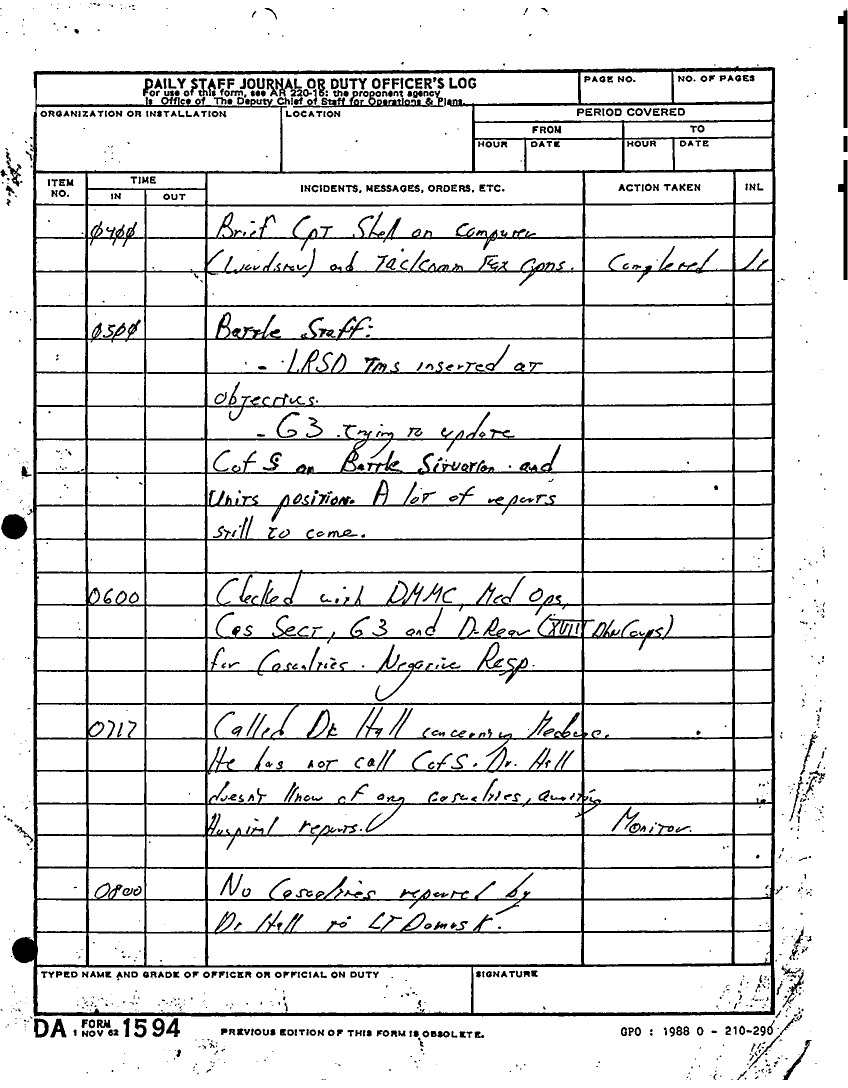 DAILY STAFF JOURNAL OR DUTY OFFICER'S LOG
For use of this form, see AR 220-15; the proponent agency
is Office of The Deputy Chief of Staff for Operations & Plans.
PAGE NO.
NO. OF PAGES
ORGANIZATION OR INSTALLATION
LOCATION
PERIOD COVERED
FROM
TO
HOUR
DATE
HOUR
DATE
ITEM NO.
TIME
IN
OUT
INCIDENTS, MESSAGES, ORDERS, ETC.
ACTION TAKEN
INL
0400 Brief CPT Shell on computer
(Wordstar) and Tac/Comm Fax Opns. Completed
0500 Battle Staff:
- LRSD Tms inserted at
objectives.
- G3 trying to update
CofS on Battle Situation and
Units position. A lot of reports
still to come.
0600 Checked with DMMC, Med Ops,
Cas Sect, G3 and D-Rear (XVIII Abn Corps)
for Casualties. Negative Resp.
0717 Called Dr Hall concerning Medevac.
He has not call CofS. Dr. Hall
doesn't know of any casualties, awaiting
Hospital reports. Monitor.
0800 No Casualties reported by
Dr Hall to LT Domask.
TYPED NAME AND GRADE OF OFFICER OR OFFICIAL ON DUTY
SIGNATURE
DA FORM 1 NOV 62 1594
PREVIOUS EDITION OF THIS FORM IS OBSOLETE.
GPO : 1988 O - 210-290